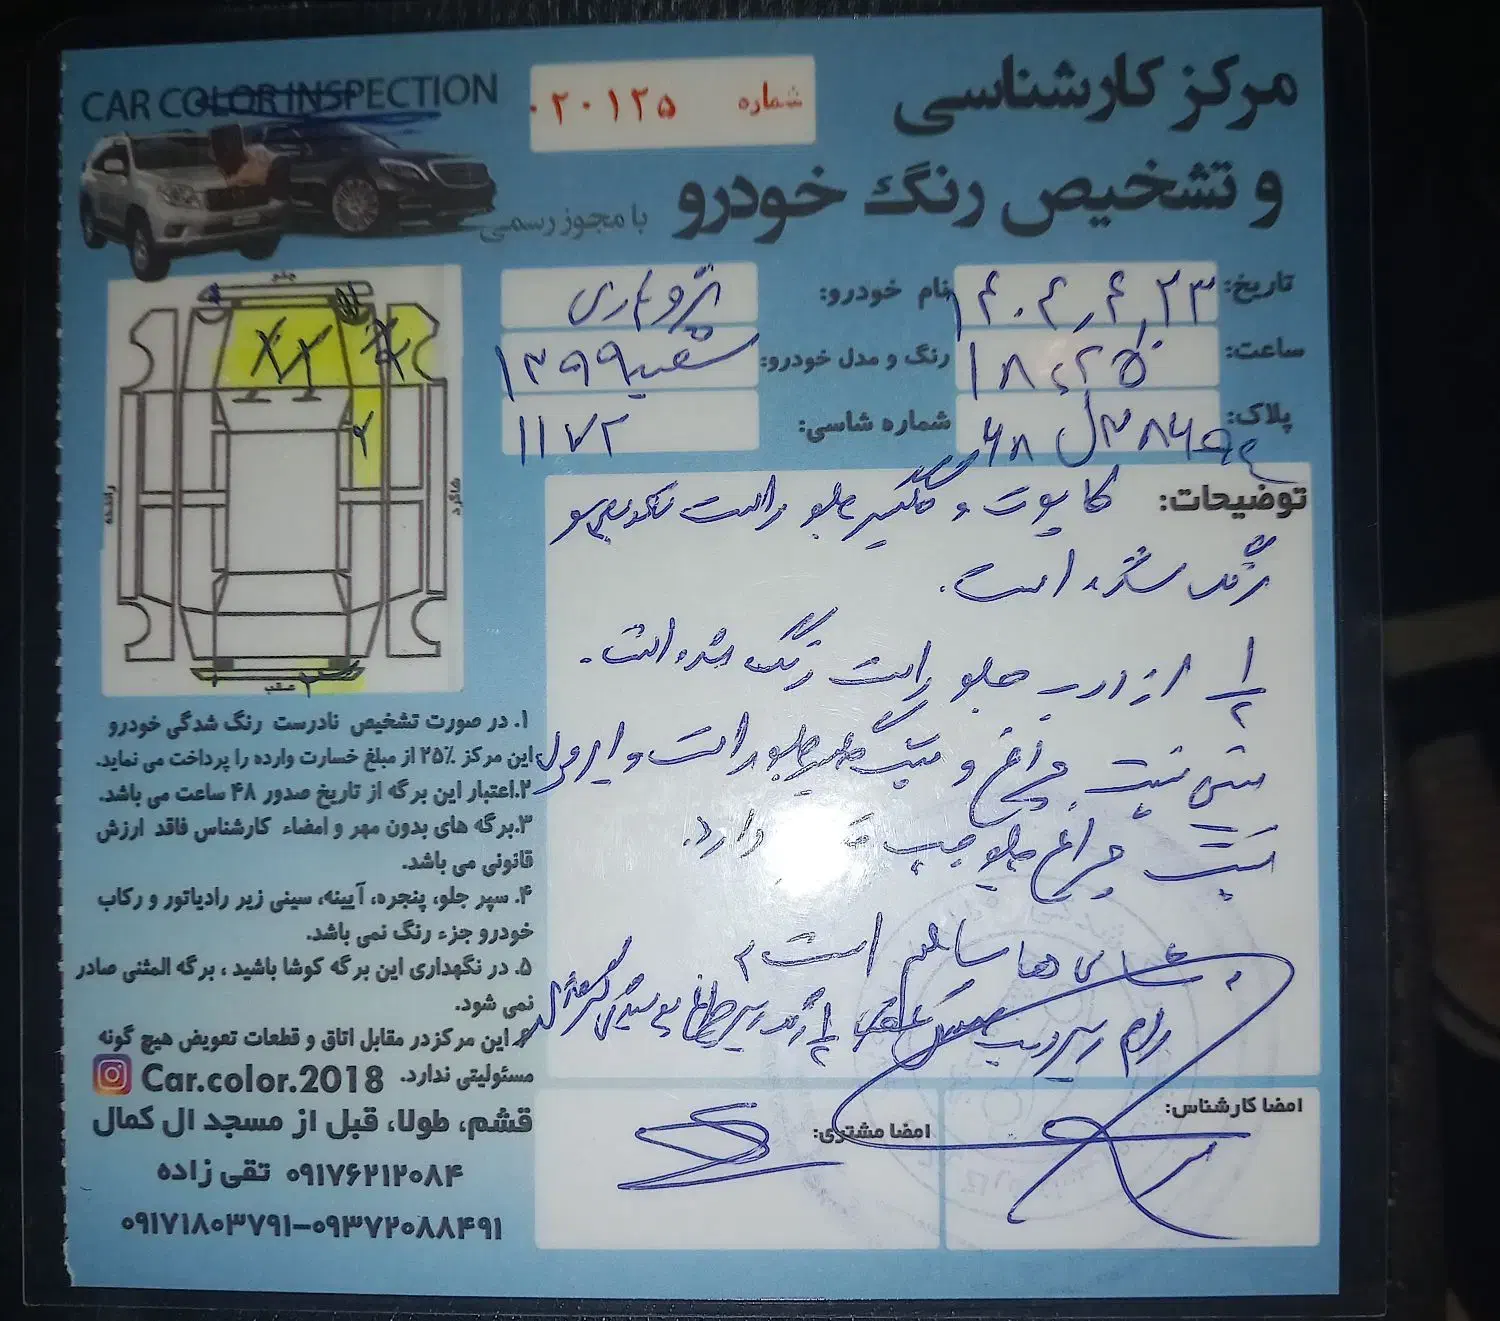 مرکز کارشناسی
و تشخیص رنگ خودرو
با مجوز رسمی
CAR COLOR INSPECTION
شماره ۰۲۰۱۲۵
تاریخ: ۱۴۰۴,۴,۲۳
نام خودرو: پژو پارس
ساعت: ۱۸:۲۵
رنگ و مدل خودرو: سفید ۱۳۹۹
پلاک:
شماره شاسی: ۱۱۷۲
جلو
راننده
شاگرد
عقب
توضیحات: کاپوت و گلگیر جلو راست
رنگ شده است.
۱/۲ از درب جلو راست رنگ شده است.
سینی پشت چراغ و راست و
پشت چراغ جلو چپ دارد.
شاسی ها سالم است
۱. در صورت تشخیص نادرست رنگ شدگی خودرو
این مرکز ۲۵٪ از مبلغ خسارت وارده را پرداخت می نماید.
۲.اعتبار این برگه از تاریخ صدور ۴۸ ساعت می باشد.
۳.برگه های بدون مهر و امضاء کارشناس فاقد ارزش
قانونی می باشد.
۴. سپر جلو، پنجره، آیینه، سینی زیر رادیاتور و رکاب
خودرو جزء رنگ نمی باشد.
۵. در نگهداری این برگه کوشا باشید ، برگه المثنی صادر
نمی شود.
۶. این مرکزدر مقابل اتاق و قطعات تعویض هیچ گونه
مسئولیتی ندارد.
Car.color.2018
قشم، طولا، قبل از مسجد ال کمال
۰۹۱۷۶۲۱۲۰۸۴ تقی زاده
۰۹۱۷۱۸۰۳۷۹۱-۰۹۳۷۲۰۸۸۴۹۱
امضا کارشناس:
امضا مشتری: